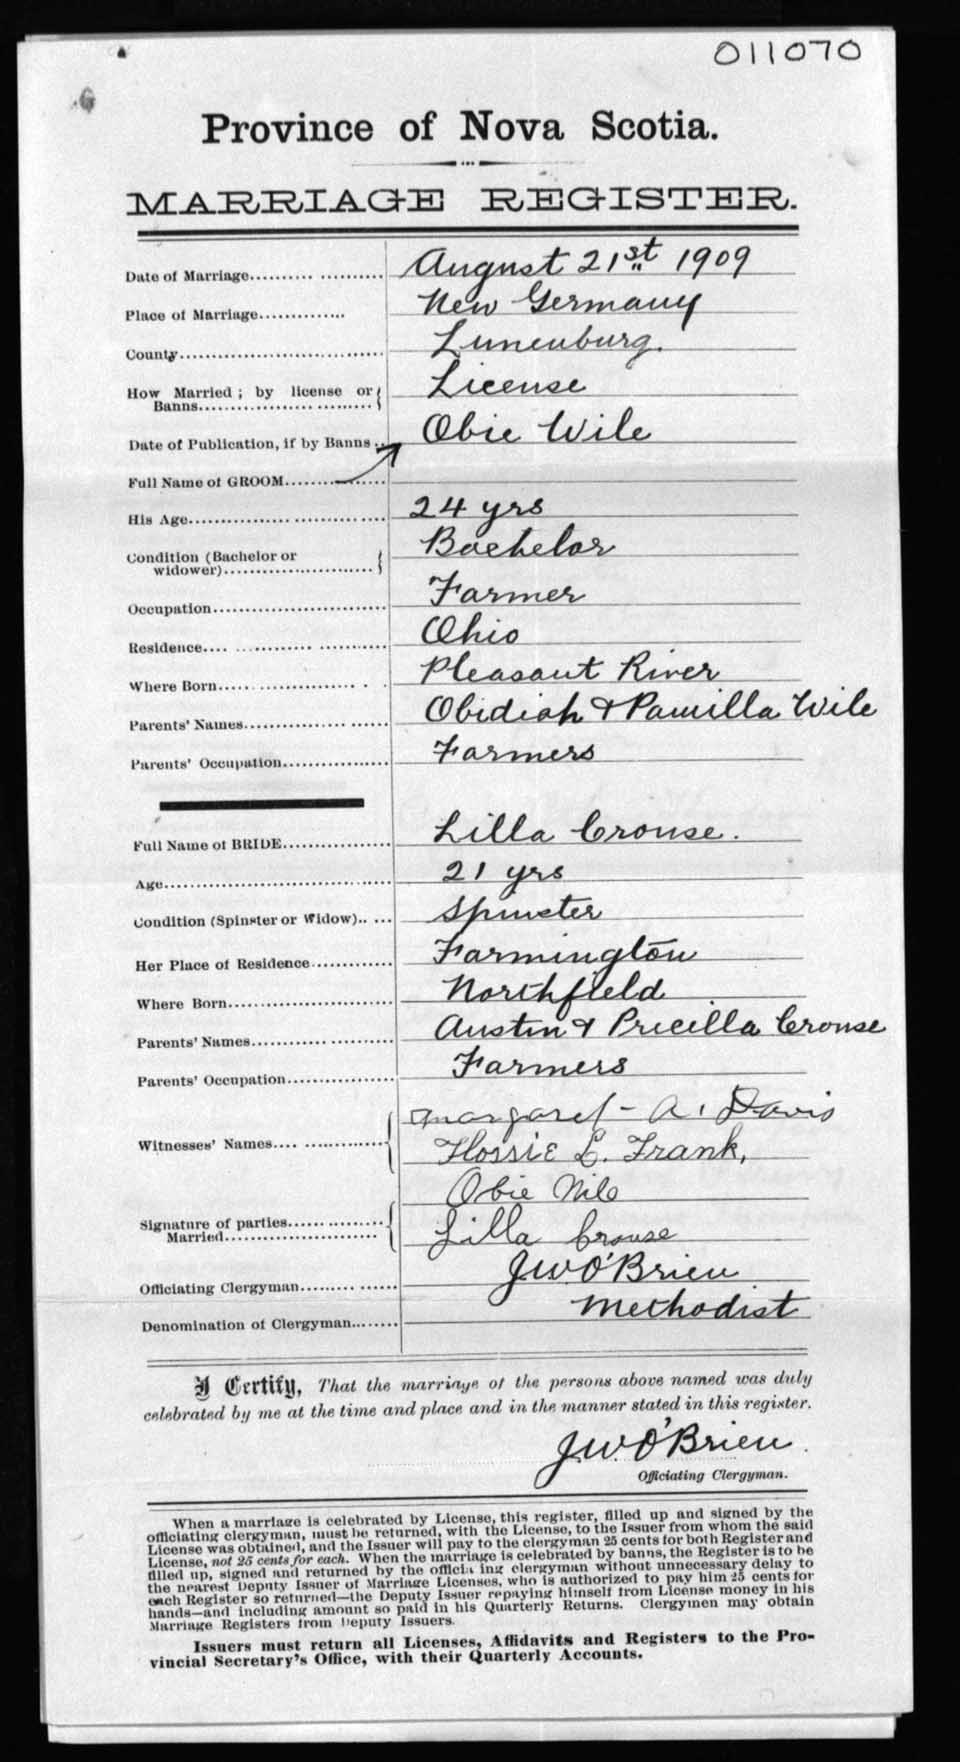 011070
Province of Nova Scotia.
MARRIAGE REGISTER.
Date of Marriage.................... August 21st 1909
Place of Marriage............. New Germany
County.............................. Lunenburg.
How Married; by license or
Banns........................ License
Date of Publication, if by Banns... Obie Wile
Full Name of GROOM...............
His Age............................. 24 yrs
Condition (Bachelor or
widower)...................... Bachelor
Occupation......................... Farmer
Residence.... ...................... Ohio
Where Born..................... . . Pleasant River
Parents' Names..................... Obidiah & Pamilla Wile
Parents' Occupation................ Farmers
Full Name of BRIDE................ Lilla Crouse.
Age................................. 21 yrs
Condition (Spinster or Widow).. ... Spinster
Her Place of Residence............ Farmington
Where Born......................... Northfield
Parents' Names..................... Austin & Pricilla Crouse
Parents' Occupation................ Farmers
Margaret A. Davis
Witnesses' Names.... ............. Flossie L. Frank,
Obie Wile
Signature of parties................
Married........................ Lilla Crouse
Officiating Clergyman............... J W O'Brien
Denomination of Clergyman........ Methodist
I Certify, That the marriage of the persons above named was duly
celebrated by me at the time and place and in the manner stated in this register.
J W O'Brien
Officiating Clergyman.
When a marriage is celebrated by License, this register, filled up and signed by the
officiating clergyman, must be returned, with the License, to the Issuer from whom the said
License was obtained, and the Issuer will pay to the clergyman 25 cents for both Register and
License, not 25 cents for each. When the marriage is celebrated by banns, the Register is to be
filled up, signed and returned by the officiating clergyman without unnecessary delay to
the nearest Deputy Issuer of Marriage Licenses, who is authorized to pay him 25 cents for
each Register so returned—the Deputy Issuer repaying himself from License money in his
hands—and including amount so paid in his Quarterly Returns. Clergymen may obtain
Marriage Registers from Deputy Issuers.
Issuers must return all Licenses, Affidavits and Registers to the Pro-
vincial Secretary's Office, with their Quarterly Accounts.